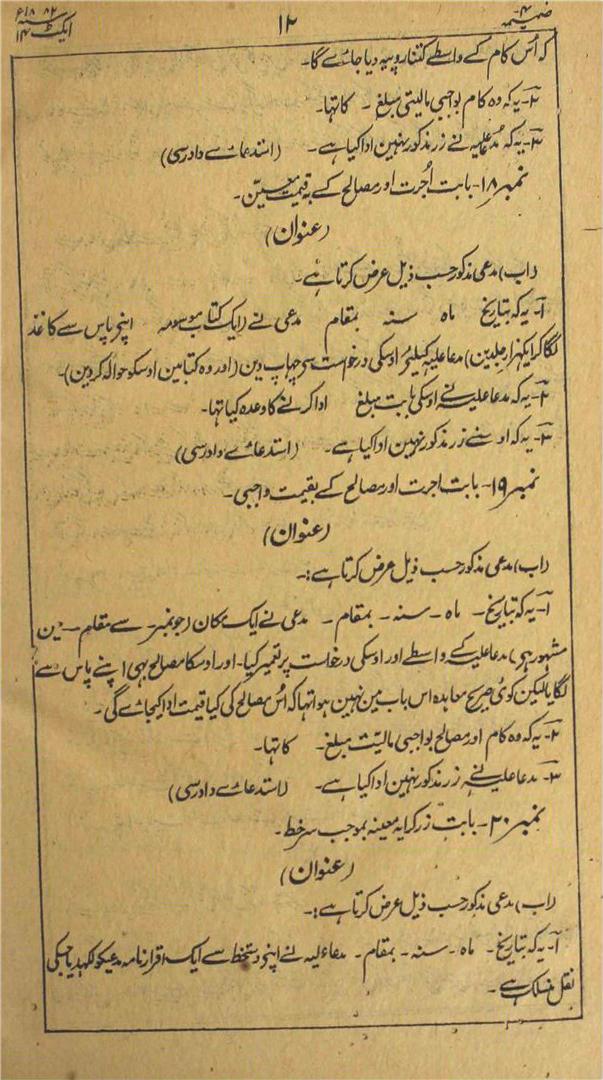 ضمیمہ ۴-
۱۲
سنہ ۱۸۸۲ء
ایکٹ ۱۴
کہ اُس کام کے واسطے کتنا روپیہ دیا جائے گا۔
۲- یہ کہ وہ کام بواجبی مالیتی مبلغ - کا تہا۔
۳- یہ کہ مُدعا علیہ نے زر مذکور نہین ادا کیا ہے۔ (استدعاے دادرسی)
نمبر ۱۸- بابت اُجرت اور مصالح کے بہ قیمت معیّن۔
(عنوان)
(اب) مدعی مذکور حسب ذیل عرض کرتا ہے۔
۱- یہ کہ بتاریخ ماہ سنہ بمقام مدعی نے (ایک کتاب موسومہ اپنے پاس سے کاغذ
لگا کر ایکہزار جلدین) مدعا علیہ کیلیے اوسکی درخواست سے چہاپ دین (اور وہ کتابین اوسکو حوالہ کر دین)۔
۲- یہ کہ مدعا علیہ نے اوسکی بابت مبلغ ادا کرنے کا وعدہ کیا تہا۔
۳- یہ کہ اوسنے زر مذکور نہین ادا کیا ہے۔ (استدعاے دادرسی)
نمبر ۱۹- بابت اجرت اور مصالح کے بقیمت واجبی۔
(عنوان)
(اب) مدعی مذکور حسب ذیل عرض کرتا ہے:-
۱- یہ کہ بتاریخ- ماہ- سنہ- بمقام- مدعی نے ایک مکان (جو نمبر- سے مقام- مین
مشہور ہی) مدعا علیہ کے واسطے اور اوسکی درخواست پر تعمیر کیا- اور اوسکا مصالح بہی اپنے پاس سے
لگایا لیکن کوئی صریح معاہدہ اس باب مین نہین ہوا تہا کہ اُس مصالح کی کیا قیمت ادا کیجاے گی۔
۲- یہ کہ وہ کام اور مصالح بواجبی مالیت مبلغ- کا تہا۔
۳- مدعا علیہ نے زر مذکور نہین ادا کیا ہے۔ (استدعاے دادرسی)
نمبر ۲۰- بابت زر کرایہ معینہ بموجب سرخط۔
(عنوان)
(اب) مدعی مذکور حسب ذیل عرض کرتا ہے:-
۱- یہ کہ بتاریخ- ماہ- سنہ- بمقام- مدعا علیہ نے اپنے دستخط سے ایک اقرارنامہ مدعیکو لکہدیا جسکی
نقل منسلک ہے۔